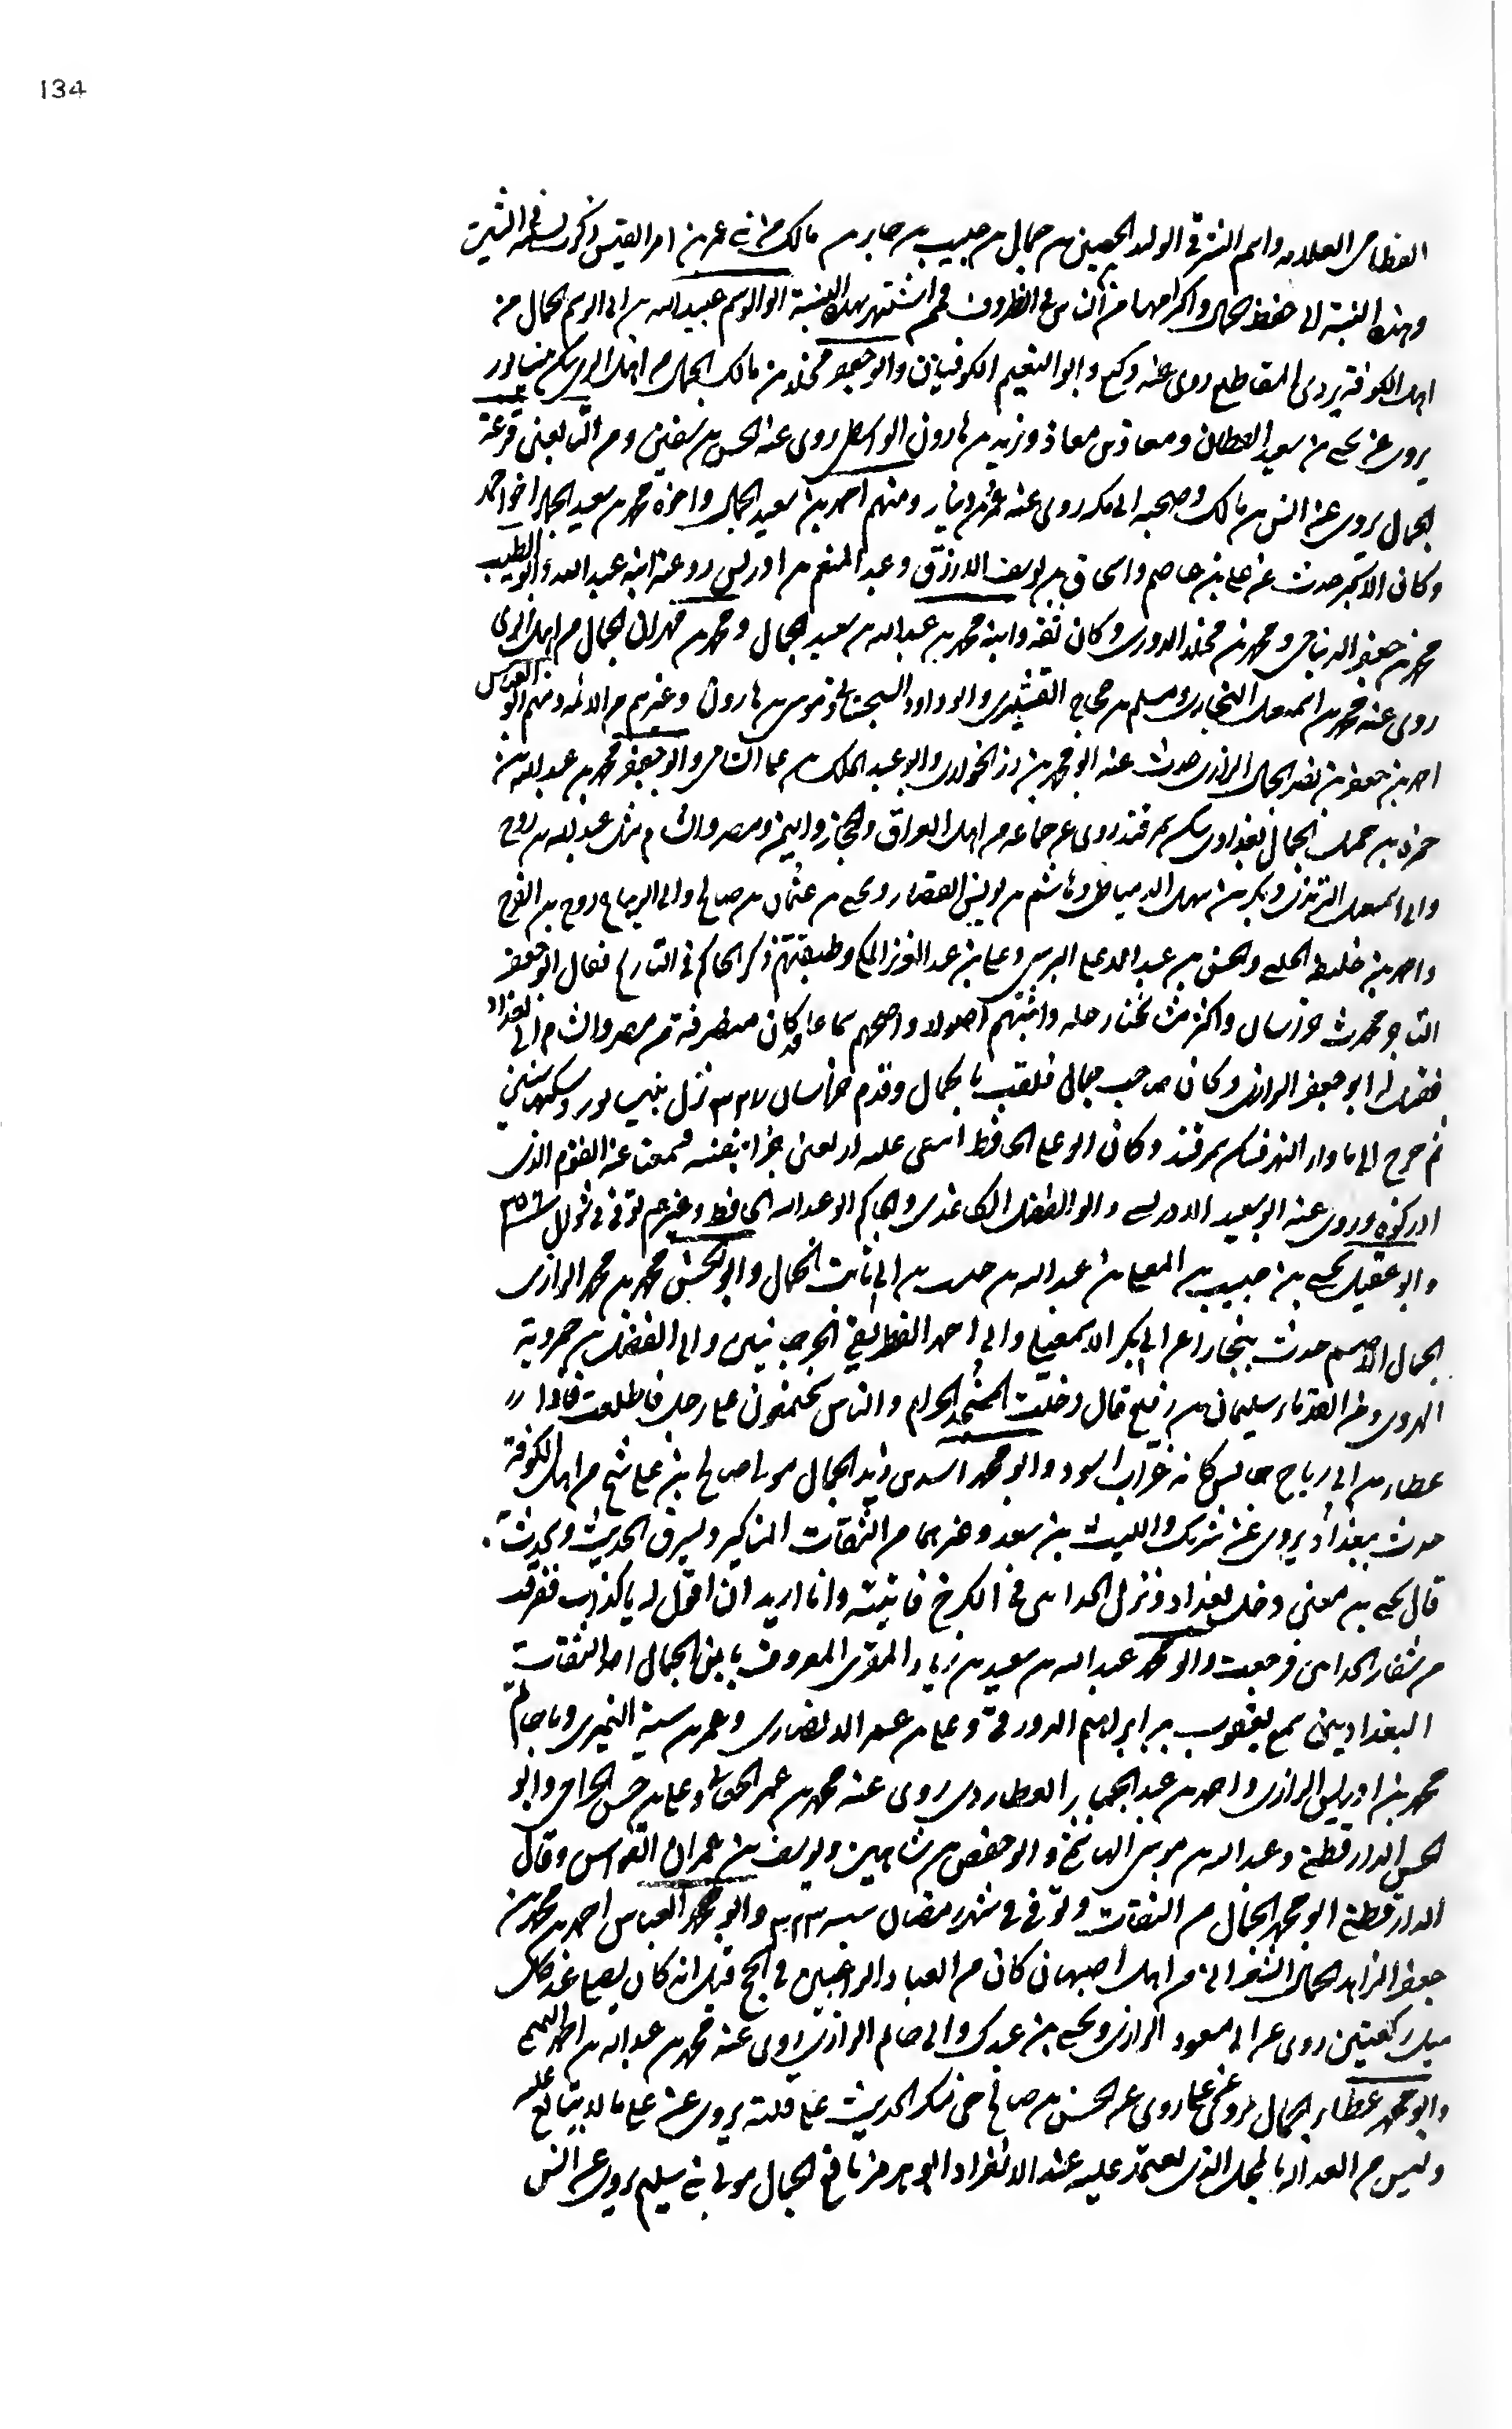 134
القطامي العلامه واسم الشرقي الوليد الحصين بن جمال بن حبيب بن جابر بن مالك من بني عمرو بن امرالقيس ذكرته في الشين
وهذه النسبة الى حفظ الجمال واكرامها من الناس في الطرق فمن اشتهر بهذه النسبة ابو الوسيم عبيدالله بن ابي الوسيم الجمال من
اهل الكوفة يروى المقاطيع روى عنه وكيع وابو النعيم الكوفيان وابو جعفر مخلد بن مالك الجمال من اهل الرى سكن نيسابور
يروى عن يحيى بن سعيد القطان ومعاذ بن معاذ ويزيد بن هارون الواسطى روى عنه الحسن بن سفين ومن التابعين قرعة
الجمال يروى عن انس بن مالك وصحبه الى مكه روى عنه عمر بن دينار ومنهم احمد بن سعيد الجمال واخوه محمد بن سعيد الجمال اخو احمد
وكان الاكبر حدث عن علي بن عاصم واسحاق بن يوسف الازرق وعبد المنعم بن ادريس روى عنه ابنه عبد الله وابو الطيب
محمد بن جعفر الديباجي ومحمد بن مخلد الدورى وكان ثقة وابنه محمد بن عبدالله بن سعيد الجمال ومحمد بن مهران الجمال من اهل الرى
روى عنه محمد بن اسمعيل البخارى ومسلم بن حجاج القشيرى وابو داود السجستاني وموسى بن هارون وغيرهم من الائمه ومنهم ابو العباس
احمد بن جعفر بن نصر الجمال الرازى حدث عنه ابو محمد بن الخولدى وابو عبد الملك بن الشامى وابو جعفر محمد بن عبدالله بن
حمزة بن جميل الجمال بغدادى سكن سمرقند روى عن جماعه من اهل العراق والحجاز واليمن ومصر والشام مثل عبدالله بن روح
وابى اسمعيل الترمذى وبكر بن سهل الدمياطى وهاشم بن يونس القصار ويحيى بن عثمان بن صالح وابى الزنباع روح بن الفرج
واحمد بن خليط الحلبي والحسن بن عبدالاعلى البرسى وعلي بن عبدالعزيز المكي وطبقتهم ذكر الحاكم في التاريخ فقال ابو جعفر
التاجر محدث خراسان واكثر مشايخنا رحله واثبتهم اصولا واصحهم سماعا وقد كان منصرفه من مصر والشام الى بغداد
فقيل له ابو جعفر الرازى وكان صاحب جمال فلقب بالجمال وقدم خراسان نزل نيسابور وسكنها سنين
ثم خرج الى ما وراء النهر فسكن سمرقند وكان ابو علي الحافظ على اربعين جزا بنفسه سمعنا عنه القوم الذى
ادركوه وروى عنه ابو سعيد الادريسى وابو الفضل الكاغذى والحاكم ابو عبدالله الحافظ وغيرهم توفي في شوال
وابو عقيل يحيى بن حبيب بن اسمعيل بن عبدالله بن حبيب بن ابي ثابت الجمال وابو الحسن محمد بن محمد الرازى
الجمال الاصم حدث ببخارا عن ابى بكر الاسمعيلى وابى احمد الغطريفى الجرجانيين وابى الفضل بن خميرويه
الهروى ومن القدماء سليمان بن رفيع قال دخلت المسجد الحرام والناس مجتمعون على رجل فاطلعت فاذا
عطاء بن ابي رباح جالس كانه غراب اسود وابو محمد اسد بن زيد الجمال مولى صالح بن علي شيخ من اهل الكوفة
حدث ببغداد يروى عن شريك والليث بن سعد وغيرهما من الثقات المناكير ويسرق الحديث ويحدث
قال يحيى بن معين دخل بغداد ونزل الحدا من في الكرخ فاتيته وانا اريد ان اقول له يا كذاب ففرقت
من شفار الحدا من فرجعت وابو محمد عبدالله بن سعيد بن زياد المقرى المعروف بابن الجمال احد الثقات
البغداديين سمع يعقوب بن ابراهيم الدورقى وعلي بن عمرو الانصارى وعمر بن شبة النميرى وابا حاتم
محمد بن ادريس الرازى واحمد بن عبد الجبار العطاردى روى عنه محمد بن عمر الجعابي وعلي بن حسن الجراحى وابو
الحسن الدارقطنى وعبدالله بن موسى الهاشمى وابو حفص بن شاهين ويوسف بن عمران القواس وقال
الدارقطنى ابو محمد الجمال من الثقات وتوفى في شهر رمضان سنة ٣٢٣ وابو محمد العباس احمد بن محمد بن
جعفر الزاهد الجمال الشعرانى من اهل اصبهان كان من العباد الراغبين في الحج قيل انه كان يصلى عند كل
ميل ركعتين روى عن ابى مسعود الرازى ويحيى بن عبدك وابى حاتم الرازى روى عنه محمد بن عبدالله بن احمد
وابو محمد عطاء الجمال يروى عن علي روى عنه الحسن بن صالح بن حى منكر الحديث على قلته يروى عنه علي ما لا يتابع عليه
وليس من العدالة بالمحل الذى يعتمد عليه عند الانفراد ابو هرمز نافع الجمال مولى بني سليم يروى عن انس